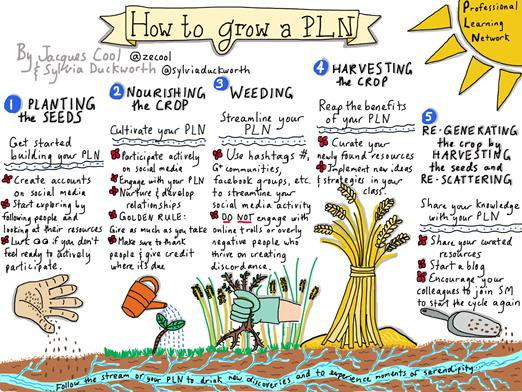 How to grow a PLN
Professional
Learning
Network
By Jacques Cool @zecool
& Sylvia Duckworth @sylviaduckworth
1 PLANTING
the SEEDS
Get started
building your PLN
Create accounts
on social media
Start exploring by
following people and
looking at their resources
Lurk if you don't
feel ready to actively
participate.
2 NOURISHING
the CROP
Cultivate your PLN
Participate actively
on social media
Engage with your PLN
Nurture & develop
relationships
GOLDEN RULE:
Give as much as you take
Make sure to thank
people & give credit
where it's due
3 WEEDING
Streamline your
PLN
Use hashtags #,
G+ communities,
facebook groups, etc.
to streamline your
social media activity
DO NOT engage with
online trolls or overly
negative people who
thrive on creating
discordance.
4 HARVESTING
the CROP
Reap the benefits
of your PLN
Curate your
newly found resources
Implement new ideas
& strategies in your
class.
5
RE-GENERATING
the crop by
HARVESTING
the seeds and
RE-SCATTERING
Share your knowledge
with your PLN
Share your curated
resources
Start a blog
Encourage your
colleagues to join SM
to start the cycle again
Follow the stream of your PLN to drink new discoveries and to experience moments of serendipity.